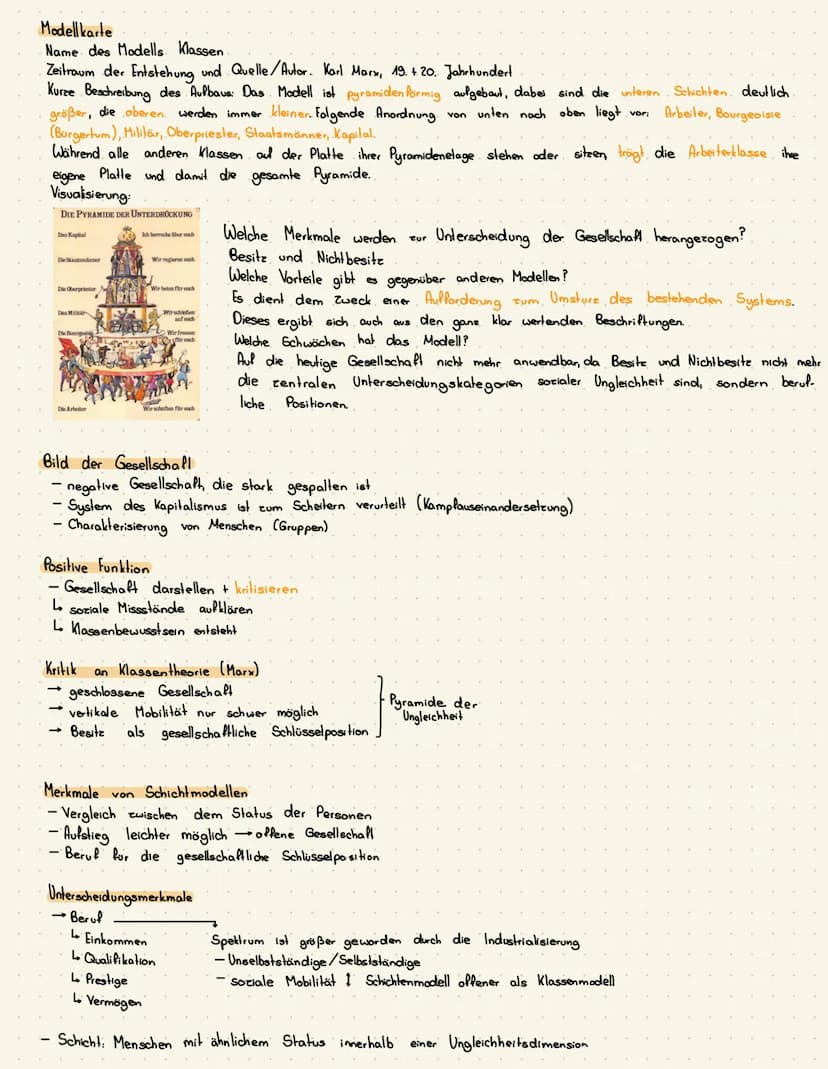 Modellkarte
Name des Modells Klassen
Zeitraum der Entstehung und Quelle/Autor. Karl Marx, 19. + 20. Jahrhundert
Kurze Beschreibung des Aufbaus: Das Modell ist pyramidenförmig aufgebaut, dabei sind die unteren Schichten deutlich
größer, die oberen werden immer kleiner. Folgende Anordnung von unten nach oben liegt vor: Arbeiter, Bourgeoisie
(Bürgertum), Militär, Oberpriester, Staatsmänner, Kapital.
Während alle anderen Klassen auf der Platte ihrer Pyramidenelage stehen oder sitzen trägt die Arbeiterklasse ihre
eigene Platte und damit die gesamte Pyramide.
Visualisierung:
DIE PYRAMIDE DER UNTERDRÜCKUNG
Das Kapital Ich herrsche über euch
Die Staatsmänner Wir regieren euch
Die Oberpriester Wir beten für euch
Das Militär Wir schießen auf euch
Die Bourgeoisie Wir fressen für euch
Die Arbeiter Wir schaffen für euch
Welche Merkmale werden zur Unterscheidung der Gesellschaft herangezogen?
Besitz und Nichtbesitz
Welche Vorteile gibt es gegenüber anderen Modellen?
Es dient dem Zweck einer Aufforderung zum Umsturz des bestehenden Systems.
Dieses ergibt sich auch aus den ganz klar wertenden Beschriftungen.
Welche Schwächen hat das Modell?
Auf die heutige Gesellschaft nicht mehr anwendbar, da Besitz und Nichtbesitz nicht mehr
die zentralen Unterscheidungskategorien sozialer Ungleichheit sind, sondern beruf-
liche Positionen.
Bild der Gesellschaft
- negative Gesellschaft, die stark gespalten ist
- System des Kapitalismus ist zum Scheitern verurteilt (Kampfauseinandersetzung)
- Charakterisierung von Menschen (Gruppen)
Positive Funktion
- Gesellschaft darstellen + kritisieren
↳ soziale Missstände aufklären
↳ Klassenbewusstsein entsteht
Kritik an Klassentheorie (Marx)
→ geschlossene Gesellschaft
→ vertikale Mobilität nur schwer möglich
→ Besitz als gesellschaftliche Schlüsselposition
Pyramide der
Ungleichheit
Merkmale von Schichtmodellen
- Vergleich zwischen dem Status der Personen
- Aufstieg leichter möglich → offene Gesellschaft
- Beruf für die gesellschaftliche Schlüsselposition
Unterscheidungsmerkmale
→ Beruf
↳ Einkommen
↳ Qualifikation
↳ Prestige
↳ Vermögen
Spektrum ist größer geworden durch die Industrialisierung
- Unselbstständige/Selbstständige
- soziale Mobilität ↑ Schichtenmodell offener als Klassenmodell
- Schicht: Menschen mit ähnlichem Status innerhalb einer Ungleichheitsdimension